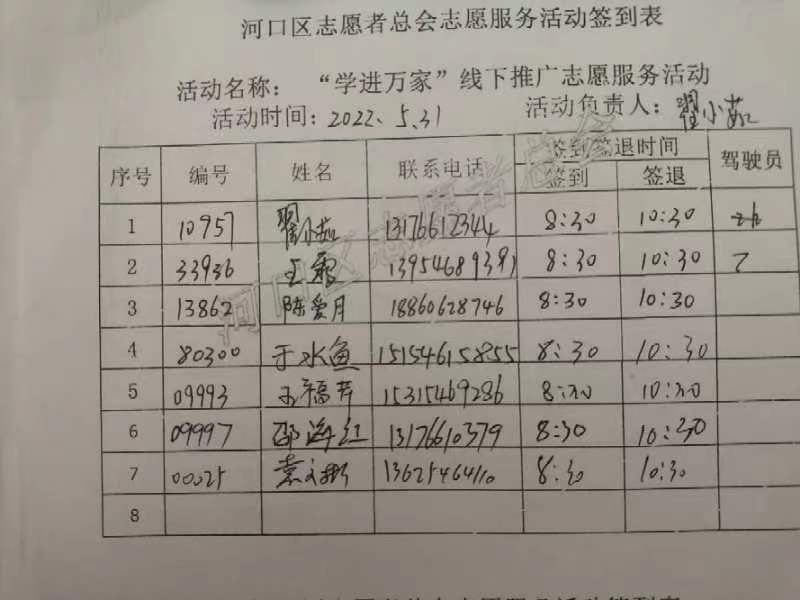 河口区志愿者总会志愿服务活动签到表
活动名称：“学进万家”线下推广志愿服务活动
活动时间：2022、5.31 活动负责人：翟小茹
序号 编号 姓名 联系电话 签到签退时间 驾驶员
签到 签退
1 10957 翟小茹 13176612344 8:30 10:30
2 33936 王霞 8:30 10:30
3 13862 陈爱月 18860628746 8:30 10:30
4 80300 于水鱼 15154615855 8:30 10:30
5 09993 王福芹 15315469286 8:30 10:30
6 09997 邵海红 13176610379 8:30 10:30
7 00025 袁文彬 13625464110 8:30 10:30
8
河口区志愿者总会